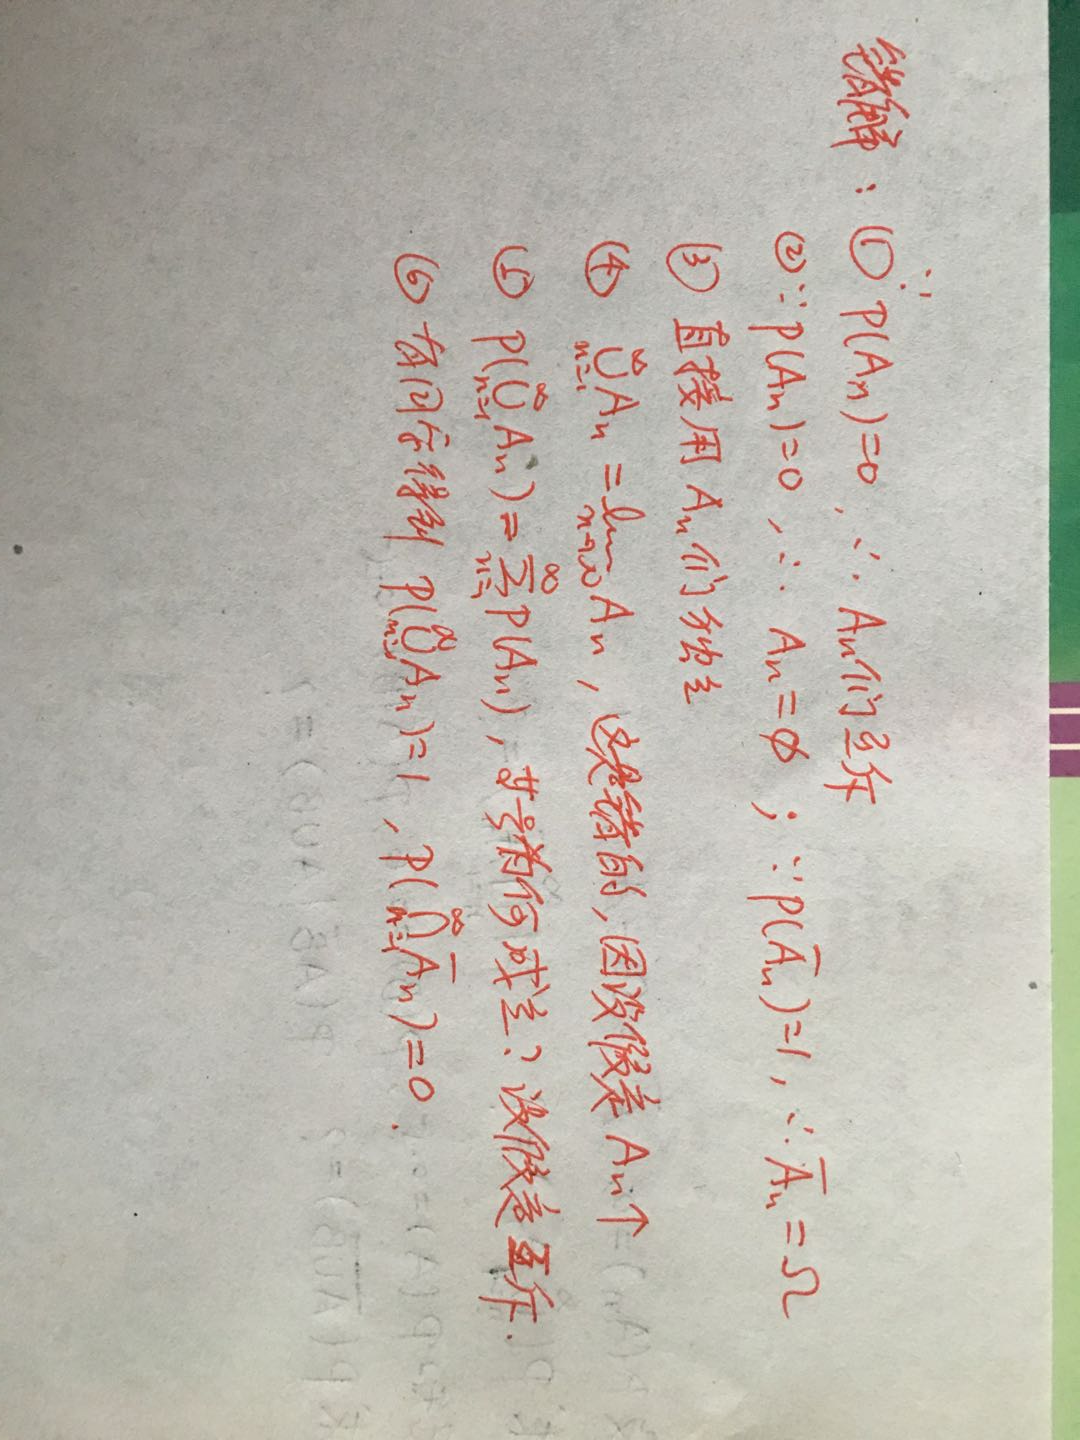 错解：① ∵ P(Aₙ)=0，∴ Aₙ们互斥
② ∵ P(Aₙ)=0，∴ Aₙ=∅；∵ P(A̅ₙ)=1，∴ A̅ₙ=Ω
③ 直接用 Aₙ们独立
④ ⋃_{n=1}^{∞} Aₙ = lim_{n→∞} Aₙ，这是错的，因没假定 Aₙ↑
⑤ P(⋃_{n=1}^{∞} Aₙ) = ∑_{n=1}^{∞} P(Aₙ)，其号为何成立？没假定互斥．
⑥ 有同学得到 P(⋃_{n=1}^{∞} Aₙ)=1，P(⋂_{n=1}^{∞} A̅ₙ)=0．